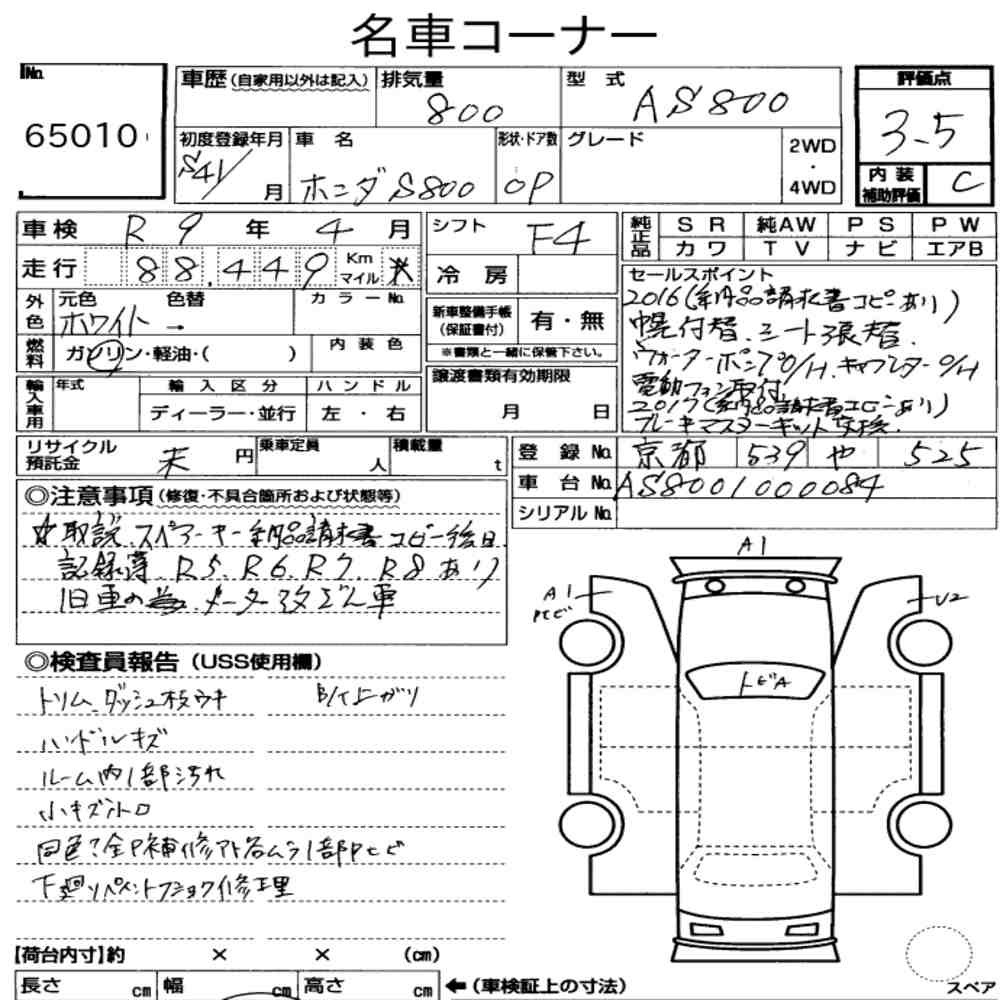 名車コーナー
No. 65010
車歴 (自家用以外は記入) 排気量 800 型式 AS800
初度登録年月 S41/ 月 車名 ホンダS800 形状・ドア数 OP グレード 2WD ・ 4WD
評価点 3.5
内装補助評価 C
車検 R9年4月
走行 88,449 Km マイル
シフト F4
冷房
純正品 SR 純AW PS PW
カワ TV ナビ エアB
外色 元色 ホワイト → 色替 カラーNo.
燃料 ガソリン・軽油・( ) 内装色
新車整備手帳(保証書付) 有・無
※書類と一緒に保管下さい。
輸入車用 年式 輸入区分 ディーラー・並行 ハンドル 左・右
譲渡書類有効期限 月 日
セールスポイント
2016(納品請求書コピーあり)
幌付替.シート張替.
ウォーターポンプO/H.キャブレターO/H
電動ファン取付
2017(納品請求書コピーあり)
ブレーキマスターキット交換.
リサイクル預託金 未 円 乗車定員 人 積載量 t
登録No. 京都 539 や 525
車台No. AS8001000084
シリアルNo.
◎注意事項(修復・不具合箇所および状態等)
☆取説.スペアーキー納品請求書コピー後日.
記録簿.R5.R6.R7.R8あり
旧車の為.メーター改ざん車
◎検査員報告(USS使用欄)
トリム.ダッシュ枚ウキ B/T上がり
ハンドルキズ
ルーム内1部汚れ
小キズ凹
同色?全P補修アト.色ムラ1部Pヒビ
下廻リペイントフショク修正有
A1
A1
Pヒビ
U2
トビA
【荷台内寸】約 × × (cm)
長さ cm 幅 cm 高さ cm ←(車検証上の寸法)
スペア